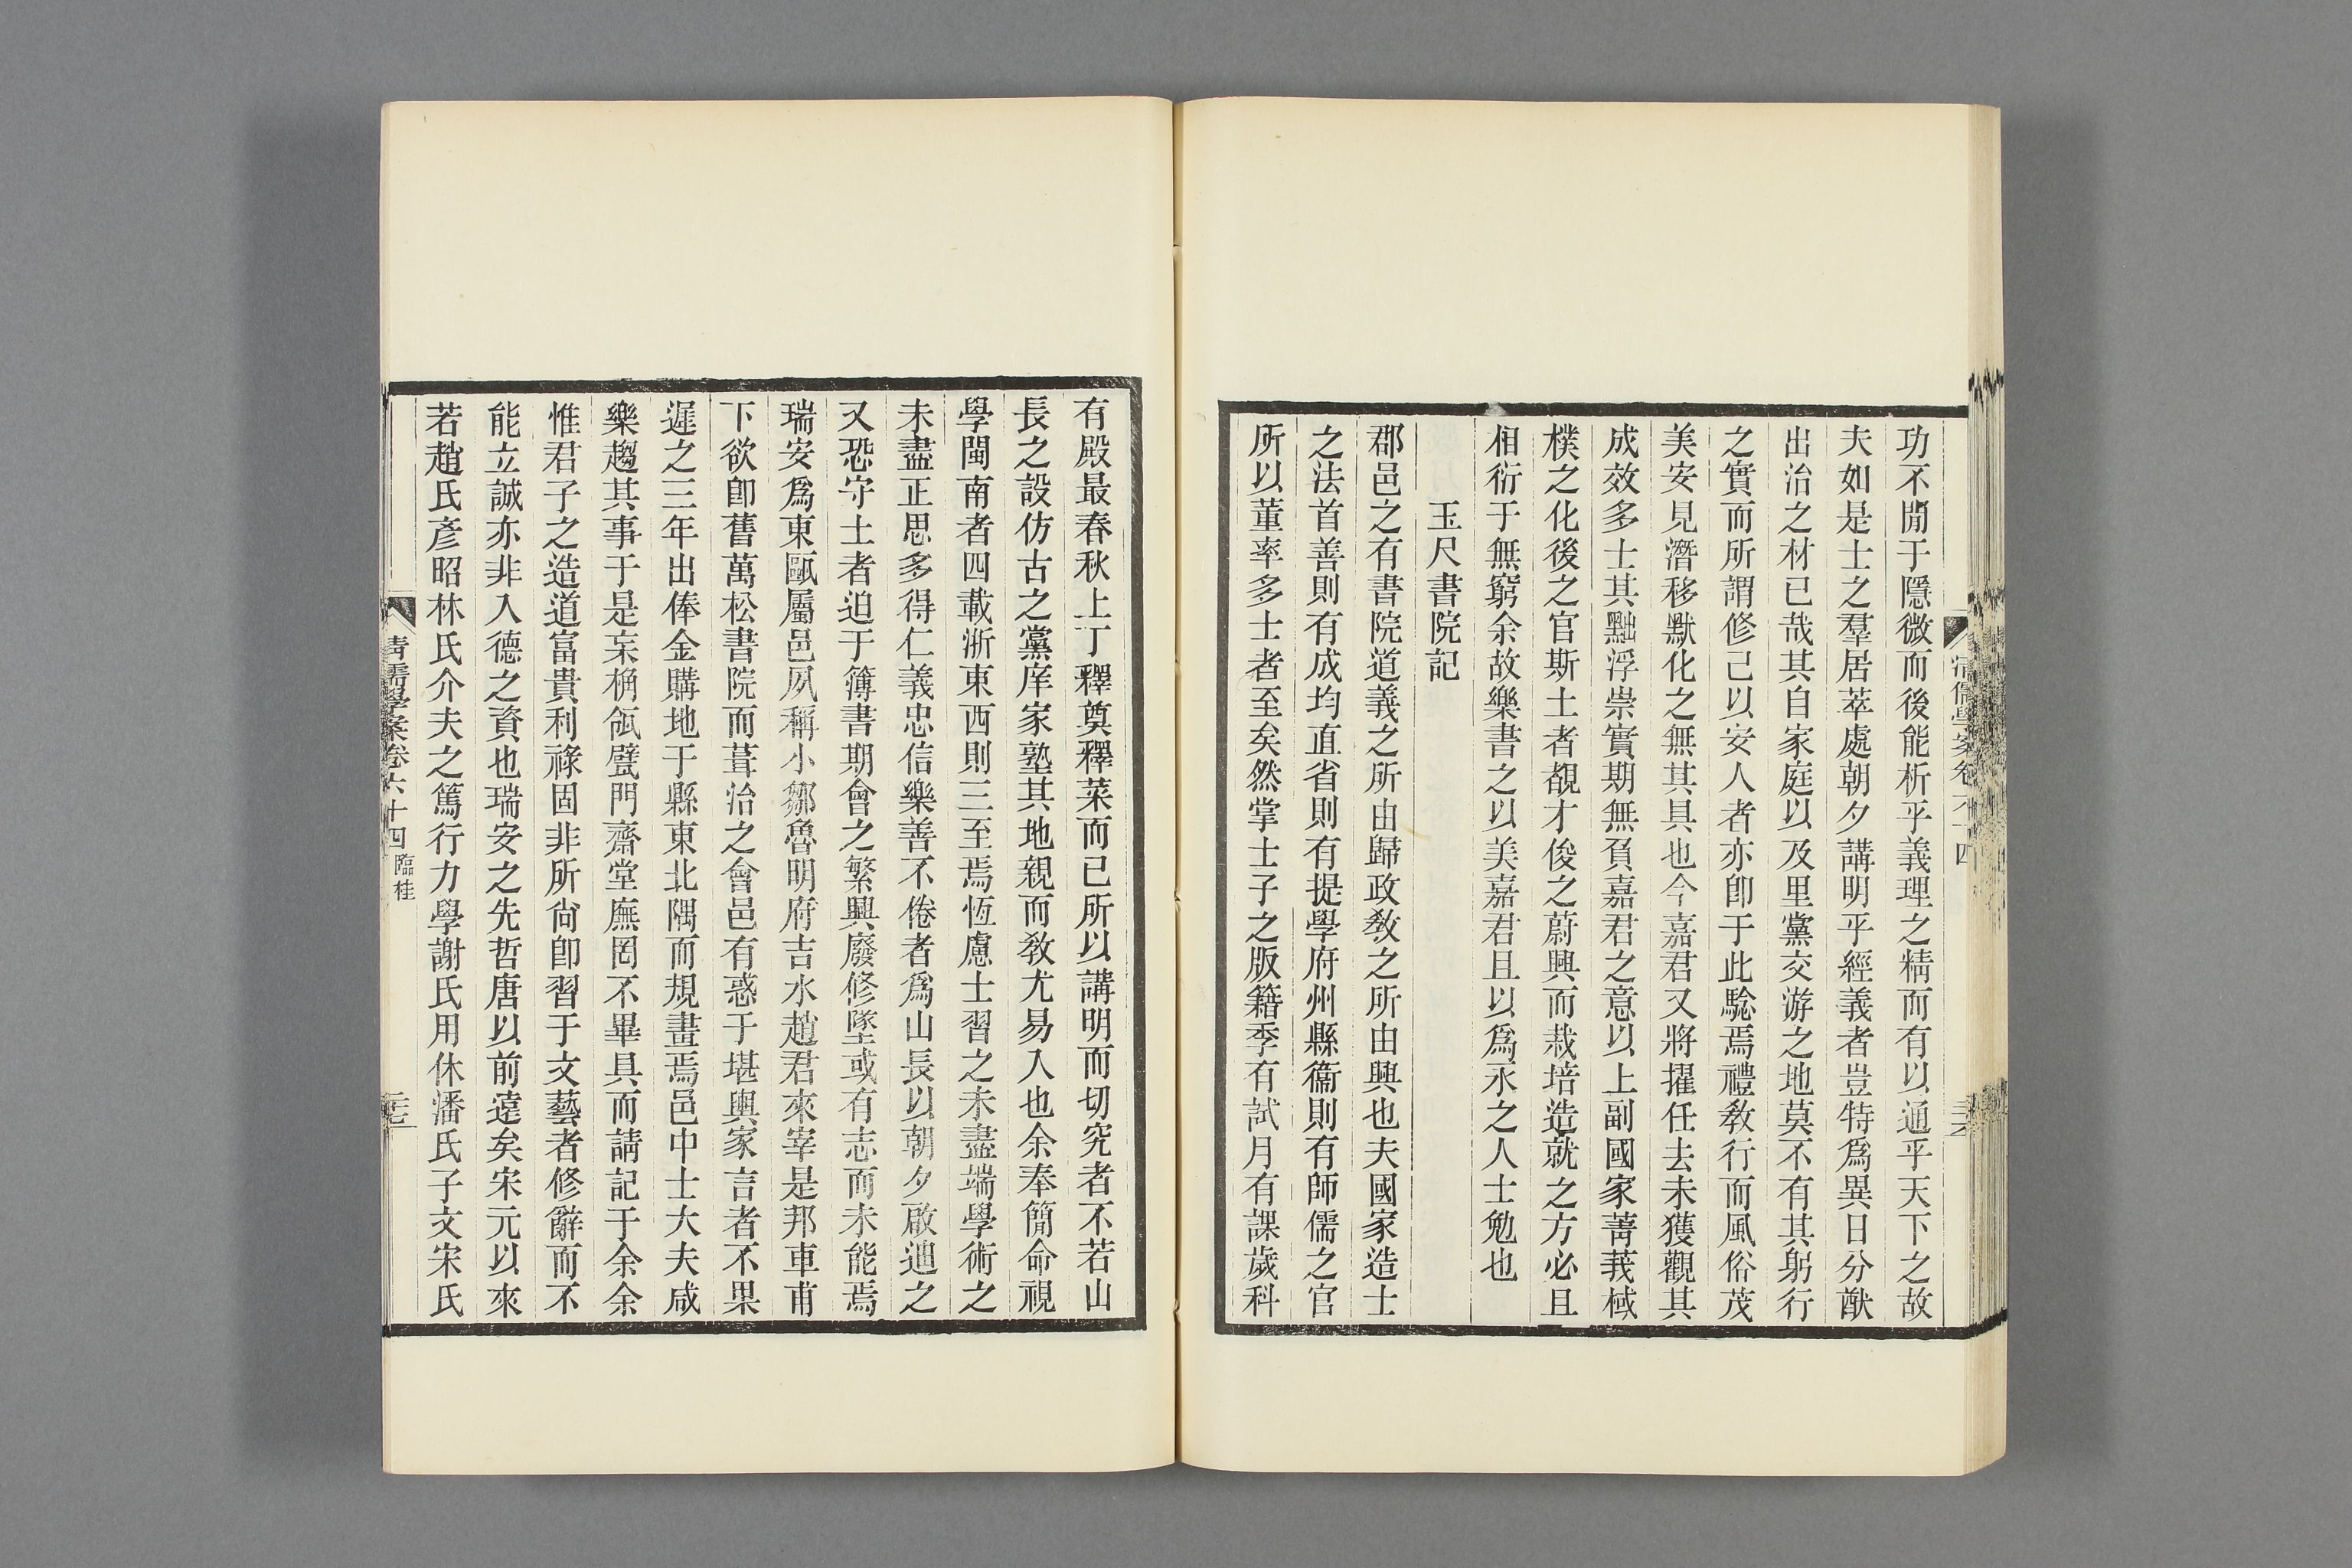 功不閒于隱微而後能析乎義理之精而有以通乎天下之故
夫如是士之羣居萃處朝夕講明乎經義者豈特爲異日分猷
出治之材已哉其自家庭以及里黨交游之地莫不有其躬行
之實而所謂修己以安人者亦卽于此騐焉禮敎行而風俗茂
美安見潛移默化之無其具也今嘉君又將擢任去未獲觀其
成效多士其黜浮崇實期無負嘉君之意以上副國家菁莪棫
樸之化後之官斯土者覩才俊之蔚興而栽培造就之方必且
相衍于無窮余故樂書之以美嘉君且以爲永之人士勉也
玉尺書院記
郡邑之有書院道義之所由歸政敎之所由興也夫國家造士
之法首善則有成均直省則有提學府州縣衞則有師儒之官
所以董率多士者至矣然掌士子之版籍季有試月有課歲科
有殿最春秋上丁釋奠釋菜而已所以講明而切究者不若山
長之設仿古之黨庠家塾其地親而敎尤易入也余奉簡命視
學閩南者四載浙東西則三至焉恆慮士習之未盡端學術之
未盡正思多得仁義忠信樂善不倦者爲山長以朝夕啟迪之
又恐守土者迫于簿書期會之繁興廢修墜或有志而未能焉
瑞安爲東甌屬邑夙稱小鄒魯明府吉水趙君來宰是邦車甫
下欲卽舊萬松書院而葺治之會邑有惑于堪輿家言者不果
遲之三年出俸金購地于縣東北隅而規畫焉邑中士大夫咸
樂趨其事于是宋桷瓴甓門齋堂廡罔不畢具而請記于余余
惟君子之造道富貴利祿固非所尙卽習于文藝者修辭而不
能立誠亦非入德之資也瑞安之先哲唐以前遠矣宋元以來
若趙氏彥昭林氏介夫之篤行力學謝氏用休潘氏子文宋氏
清儒學案卷六十四 臨桂